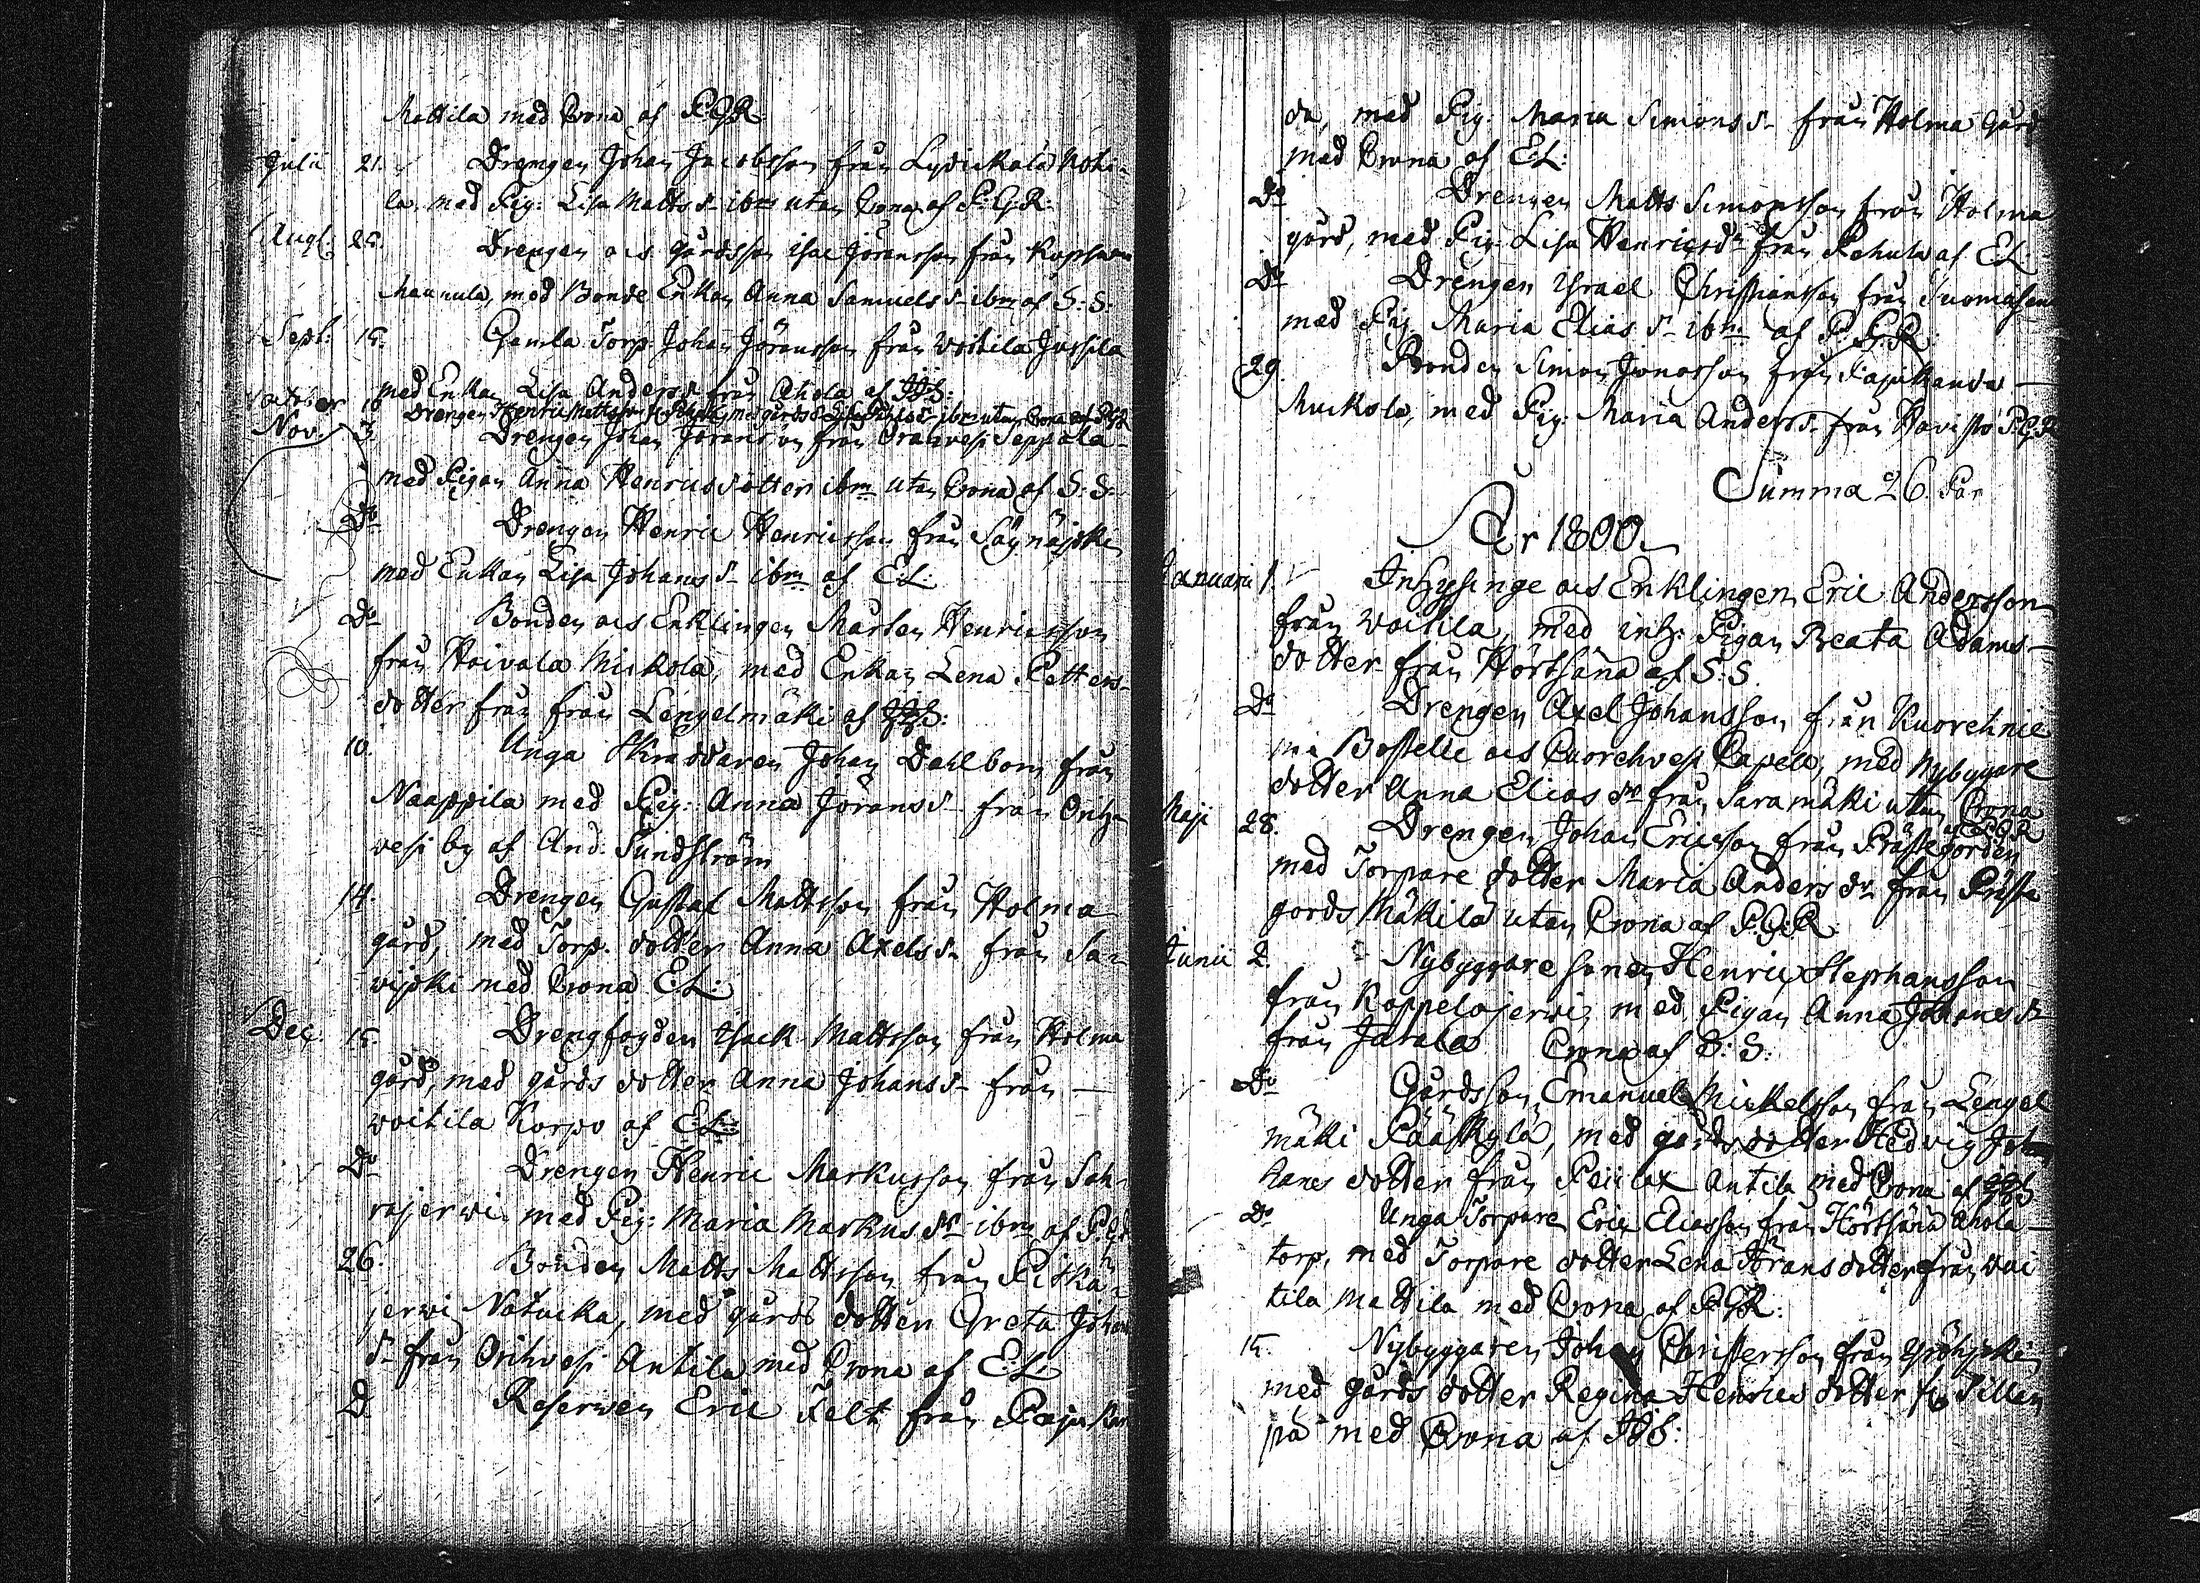 Mattila med Crona af P.G.R.
Julii 21. Drengen Johan Jacobsson från Lydickala Uoti-
la, med Pig: Lisa Matts d- ibm utan Crona af P.G.R.
Aug: 25. Drengen ocs gårdsson Isac Jöransson från
Maunula, med Bonde Enkan Anna Samuels d- ibm af S: S:
Sept: 15. Gamla Torp: Johan Jöransson från Woitila Jussila
med Enkan Lisa Anders d- från Ahola af
October Drengen Henric Mattsson
Nov. 3 Drengen Johan Jöransson från Orihvesi Seppälä
med Pigan Anna Henricsdotter ibm utan Crona af S: S:
Do Drengen Henric Henricsson från Säynäjoki
med Enkan Lisa Johans d- ibm af E.L:
Do Bonden ocs Enklingen Mårten Henricsson
från Hoivala Mickola, med Enkan Lena Petters-
dotter från från Lengelmäki af
10. Unga Skraddaren Johan Dahlbom från
Naappila med Pig: Anna Jörans d- från Orih-
vesi by af And: Sundström
14. Drengen Gustaf Mattsson från Holma
gård, med Torp. dotter Anna Axels d- från Sa-
vijoki med Crona E.L:
Dec: 15. Drengfogden Isack Mattsson från Holma
gård, med gårds dotter Anna Johans d- från
Woitila Korpo af E.L:
Do Drengen Henric Markusson från Sah-
rajerwi med Pig: Maria Markus dr ibm af P.G.R
26. Bonden Matts Mattsson från Pitkä-
jerwi Notucka, med gårds dotter Greta Johan
d- från Orihvesi Antila med Crona af E.L:
D. Reserven Eric Felt från Paju
da, med Pig: Maria Simons d- från Holma Gård
med Crona af E.L:
Do Drengen Matts Simonsson från Holma
gård, med Pig: Lisa Henrics dr från Pehula af E.L
Do Drengen Israel Christiansson från
med Pig. Maria Elias d- ibm af P.G.R.
29. Bonden Simon Jonasson från Pajukanda
Muckola, med Pig: Maria Anders d- från Havisto P.G.R
Summa 26. Par
År 1800
Januarii 1. Inhysinge ocs Enklingen Eric Andersson
från Woitila, med inh: Pigan Beata Adams-
dotter från Hörtsänä af S: S.
Do Drengen Axel Johansson från Kuorehnie
mi Bostelle ocs Cuorehvesi Capell, med Nybyggare
dotter Anna Elias dr från Saramäki utan Crona
af P.G.R
Maji 28. Drengen Johan Ericsson från Prästegorden
med Torpare dotter Maria Anders dr från Prästa
gords Mäkilä utan Crona af P.G.R.
Junii 2. Nybyggare sonen Henric Stephansson
från Koppelojerwi, med Pigan Anna Johans d-
från Jarala Crona af S: S:
Do Gårdsson Emanuel Mickelsson från Lengel
mäki Pääskylä, med gårds dotter Hedvig Jo
hans dotter från Peiilax Antila med Crona af
Do Unga Torpare Eric Eliesson från Hörtsänä Ahola
torp, med Torpare dotter Lena Jörans dotter från Woi
tila Mattila med Crona af P.G.R:
15. Nybyggaren Johan Christersson från
med gårds dotter Regina Henrics dotter från Pillin
på med Crona af